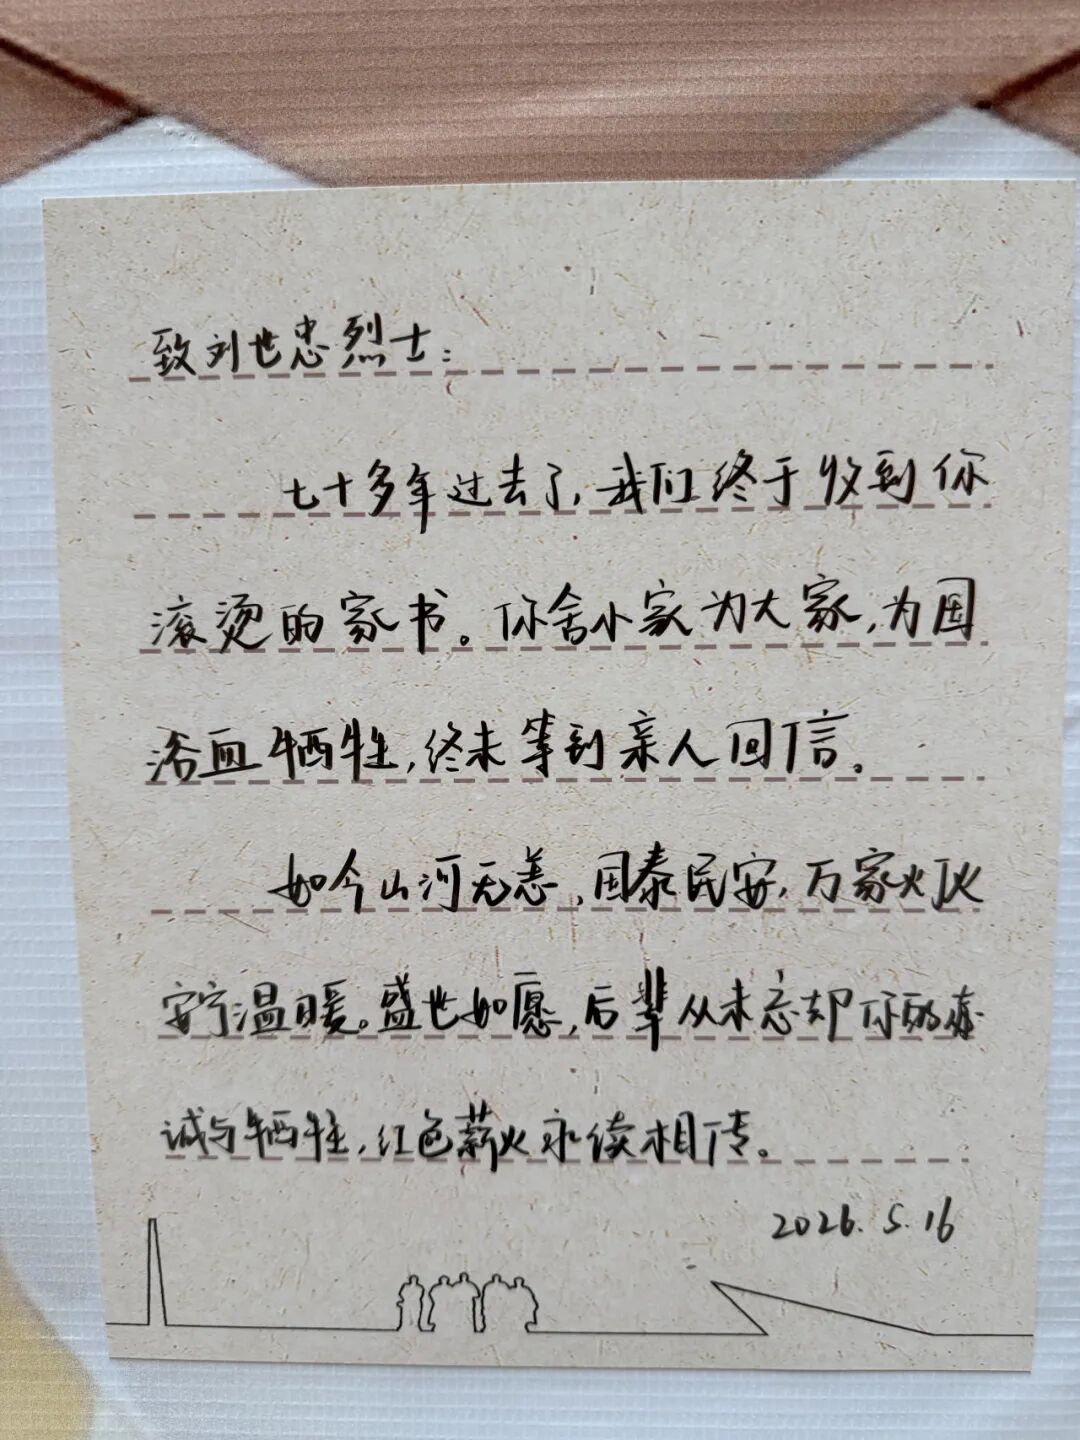 致刘世忠烈士：
七十多年过去了，我们终于收到你
滚烫的家书。你舍小家为大家，为国
浴血牺牲，终未等到亲人回信。
如今山河无恙，国泰民安，万家灯火
安宁温暖。盛世如愿，后辈从未忘却你的赤
诚与牺牲，红色薪火永续相传。
2026.5.16